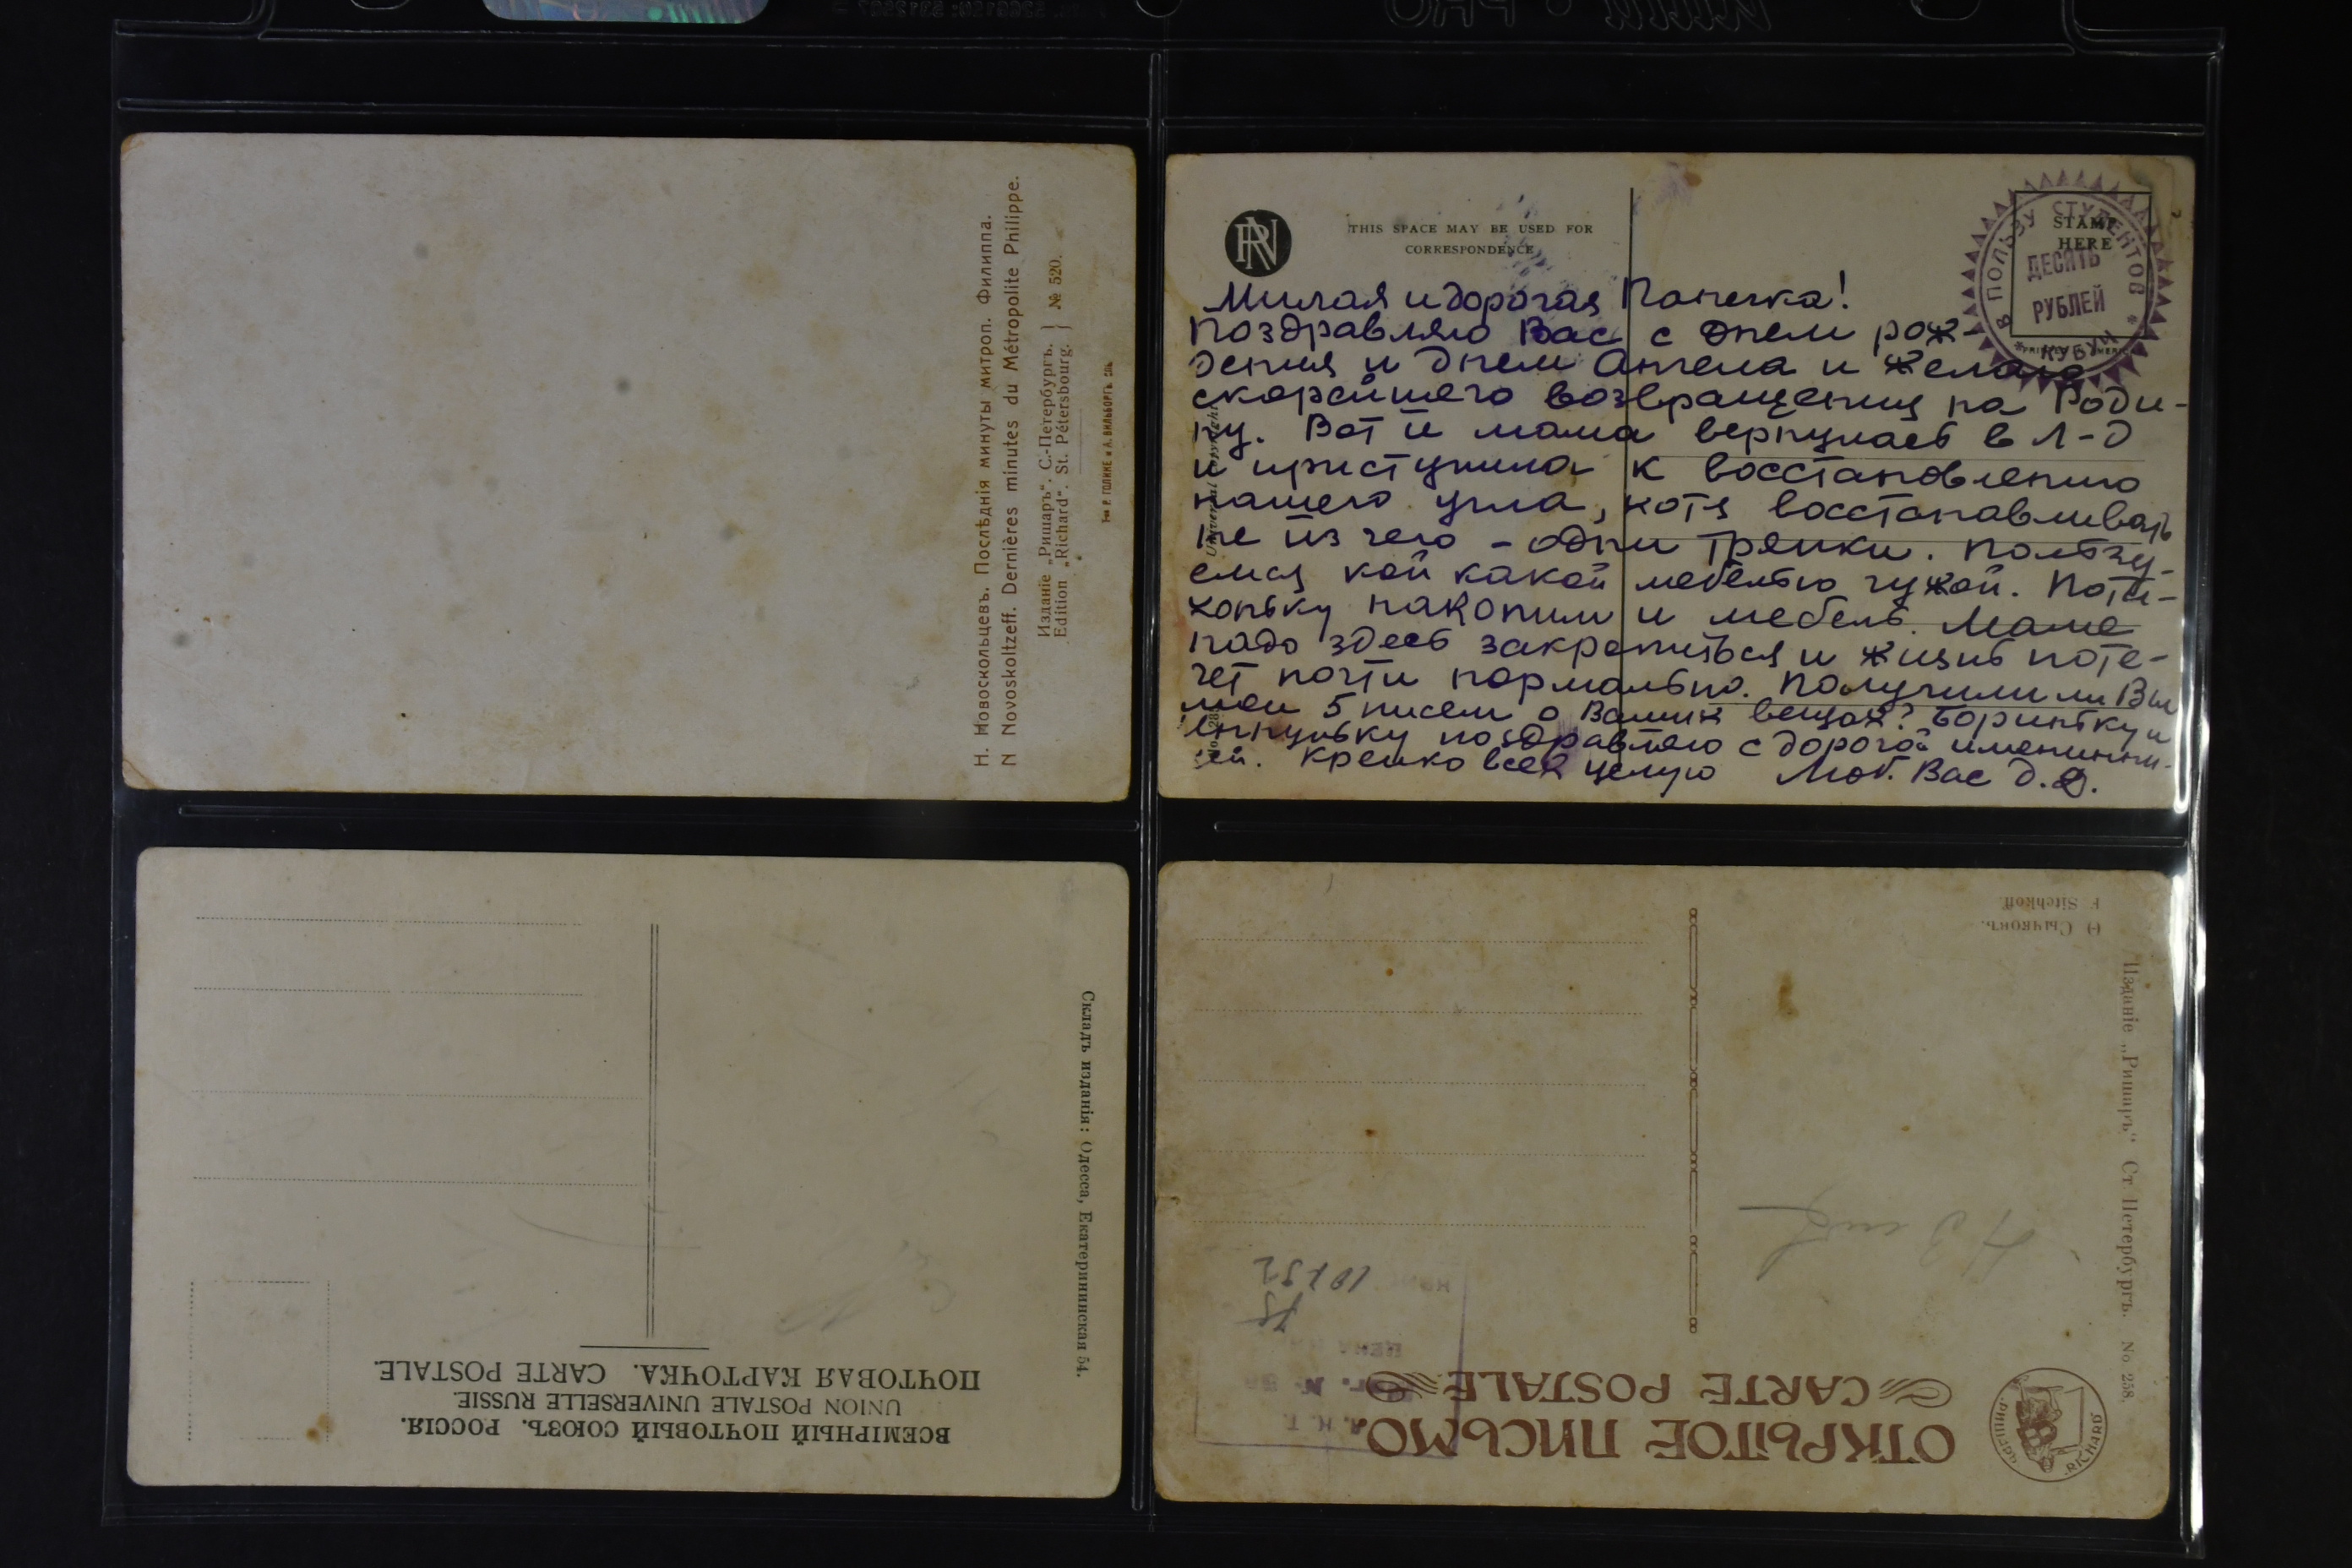 Н. Новоскольцевъ. Послѣднія минуты митроп. Филиппа.
N Novoskoltzeff. Dernières minutes du Métropolite Philippe.
Изданіе „Ришаръ“. С.-Петербургъ.
Edition „Richard“. St. Pétersbourg.
№ 520.
Т-во Р. ГОЛИКЕ и А. ВИЛЬБОРГЪ. СПБ.
THIS SPACE MAY BE USED FOR
CORRESPONDENCE
STAMP
HERE
В ПОЛЬЗУ СТУДЕНТОВ
ДЕСЯТЬ
РУБЛЕЙ
* КУБУЧ *
Милая и дорогая
Поздравляю Вас с днем рож-
дения и днем Ангела и желаю
скорейшего возвращения на Роди-
ну. Вот и мама вернулась в Л-д
и приступила к восстановлению
нашего угла, хотя восстанавливать
не из чего - одни тряпки. Пользу-
емся кой какой мебелью чужой. Поти-
хоньку накопим и мебель. Маме
надо здесь закрепиться и жизнь поте-
чет почти нормально. Получили ли Вы
мои 5 писем о Ваших вещах? Бориньку и
поздравляю с дорогой именинни-
цей. Крепко всех целую Люб. Вас
ВСЕМІРНЫЙ ПОЧТОВЫЙ СОЮЗЪ. РОССІЯ.
UNION POSTALE UNIVERSELLE RUSSIE.
ПОЧТОВАЯ КАРТОЧКА. CARTE POSTALE.
Складъ изданія: Одесса, Екатерининская 54.
ОТКРЫТОЕ ПИСЬМО.
CARTE POSTALE
РИШАРЪ
RICHARD
Изданіе „Ришаръ“ Ст Петербургъ. No 258.
Ѳ Сычковъ.
F Sitchkoff.
ЦЕНА